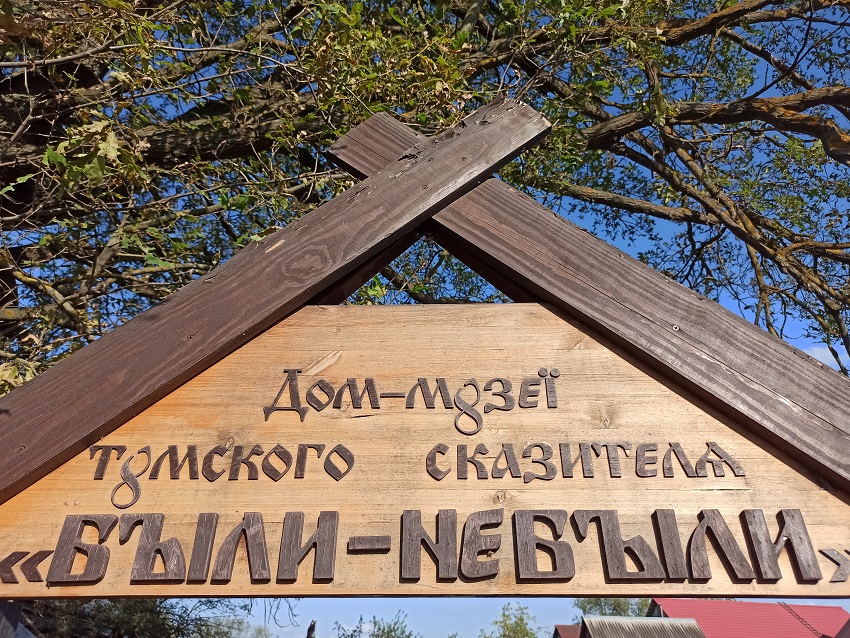 Дом-музей
тумского сказителя
«Были-небыли»